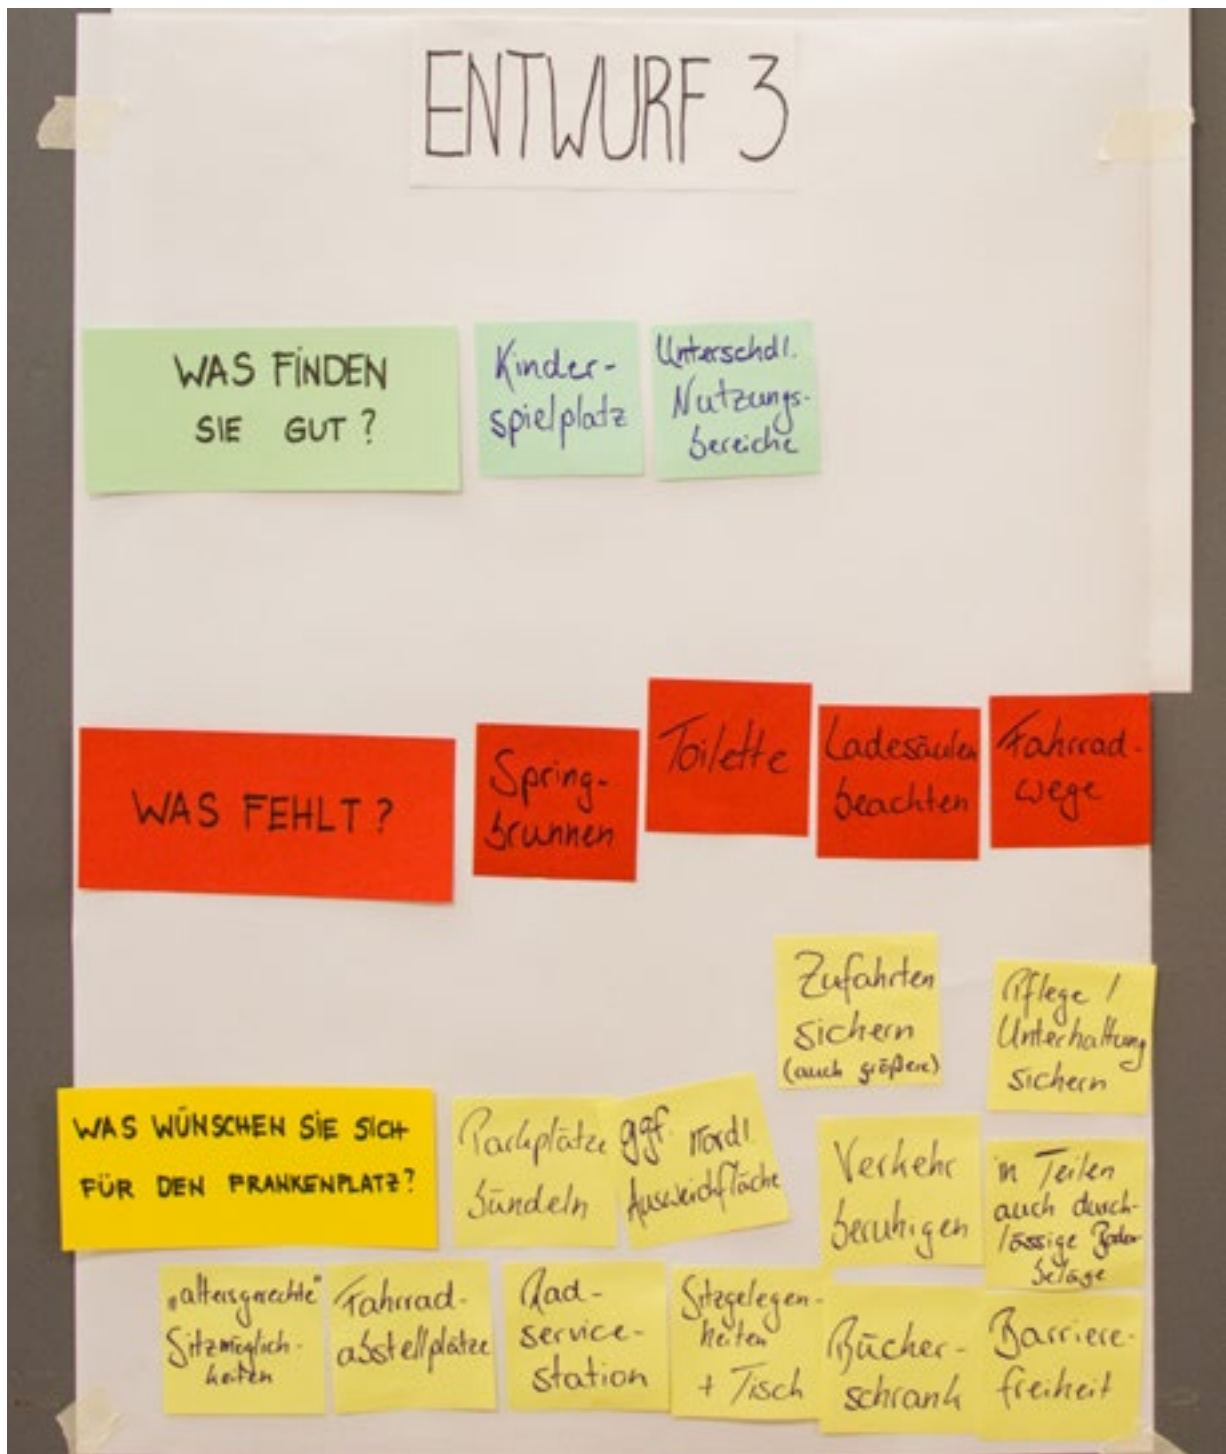 ENTWURF 3
WAS FINDEN
SIE GUT?
Kinder-
spielplatz
Unterschdl.
Nutzungs-
bereiche
WAS FEHLT?
Spring-
brunnen
Toilette
Ladesäulen
beachten
Fahrrad-
wege
Zufahrten
sichern
(auch größere)
Pflege /
Unterhaltung
sichern
WAS WÜNSCHEN SIE SICH
FÜR DEN FRANKENPLATZ?
Parkplätze
bündeln
ggf. nördl.
Ausweichfläche
Verkehr
beruhigen
in Teilen
auch durch-
lässige Boden
beläge
"altersgerechte"
Sitzmöglich-
keiten
Fahrrad-
abstellplätze
Rad-
service-
station
Sitzgelegen-
heiten
+ Tisch
Bücher-
schrank
Barriere-
freiheit